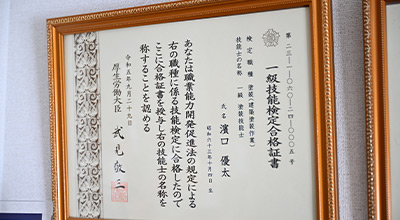 第二五-一-〇六〇-二四-〇〇〇五号
一級技能検定合格証書
検定職種 塗装(建築塗装作業)
技能士の名称 一級 塗装技能士
氏名 濱口 優太
昭和六十三年十月四日生
あなたは職業能力開発促進法の規定による
右の職種に係る技能検定に合格したので
ここに合格証書を授与し右の技能士の名称を
称することを認める
令和五年九月二十九日
厚生労働大臣 武見敬三